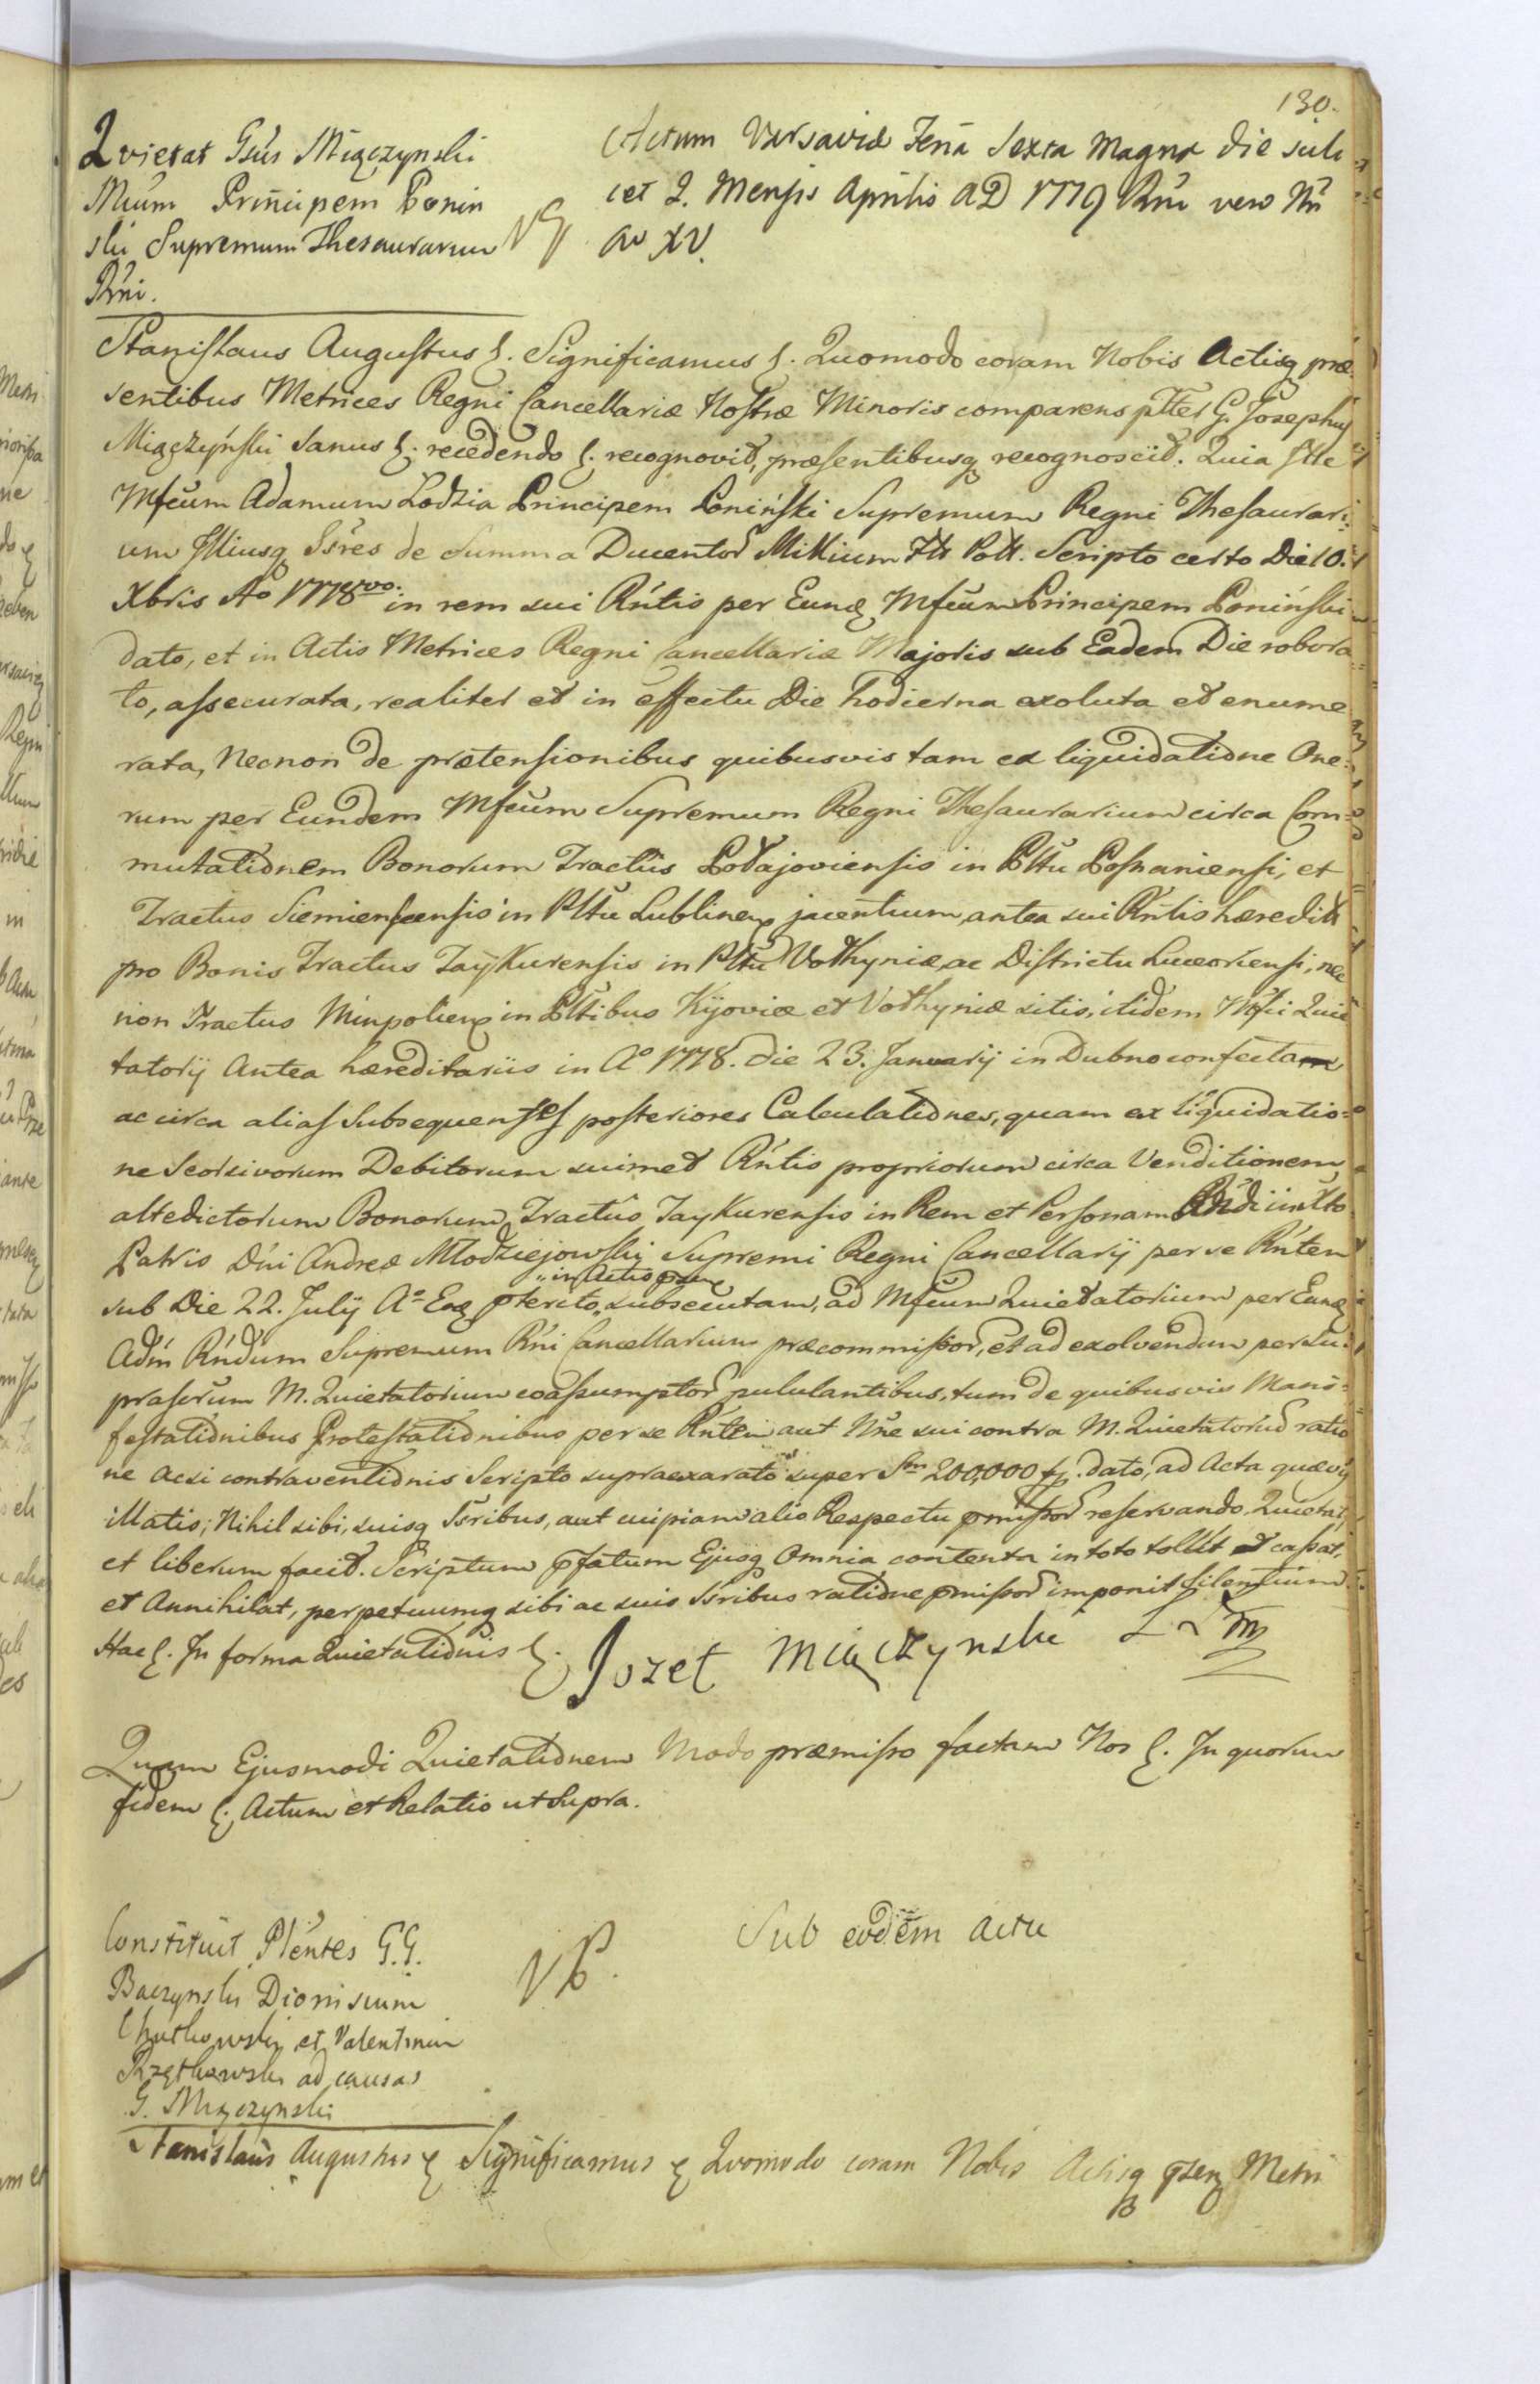 130.
Quietat Gsus Miączynski
Mcum Principem Ponin
ski Supremum Thesaurarium
Rni.
NG
Actum Varsaviæ Feria Sexta Magna die scili
cet 2. Mensis Aprilis AD 1779 Rni vero Nri
Ao XV.
Stanislaus Augustus &. Significamus &. Quomodo coram Nobis Actisq præ=
sentibus Metrices Regni Cancellariæ Nostræ Minoris comparens pltter G. Josephus
Miączyński Sanus &. recedendo &. recognovit, præsentibusq recognoscit. Quia Ille
Mfcum Adamum Lodzia Principem Poniński Supremum Regni Thesaurari=
um Illiusq Ssres de Summa Ducentor Millium Flł Poll. Scripto certo Die 10.
Xbris Ao 1778vo. in rem sui Rntis per Eund Mfcum Principem Poniński
dato, et in Actis Metrices Regni Cancellariæ Majoris sub Eadem Die robora=
to, assecurata, realiter et in effectu Die hodierna exoluta et enume
rata, Necnon de prætensionibus quibusvis tam ex liquidatione One=
rum per Eundem Mfcum Supremum Regni Thesaurarium circa Com=
mutationem Bonorum Tractus Podajoviensis in Plttu Posnaniensi, et
Tractus Siemienscensis in Plttu Lublinen jacentium, antea sui Rntis hæredit
pro Bonis Tractus Zaykurensis in Plttu Volhyniæ, ac Districtu Luceoriensi, nec
non Tractus Minpolien in Plttibus Kijoviæ et Volhyniæ sitis, itidem Mfci Quie
tatorij Antea hæreditariis in Ao 1778. die 23. Januarij in Dubno confecta
ac circa alias Subsequentes posteriores Calculationes, quam ex liquidatio=
ne Scorsivorum Debitorum suimet Rntis propriorum circa Venditionem
altedictorum Bonorum Tractus Zaykurensis in Rem et Personam Rndi in Xto
Patris Dni Andreæ Młodziejowski Supremi Regni Cancellarij per se Rntem
in Actis præn
sub Die 22. Julij Ao Eod pterito, subsecutam, ad Mfcum Quietatorium per Eund
Adm Rndum Supremum Rni Cancellarium præcommissor, et ad exolvendum per su=
prascrum M. Quietatorium coassumptor pululantibus, tum de quibusvis Mani=
festationibus Protestationibus per se Rntem aut Nne sui contra M. Quietatorium ratio
ne acsi contraventionis Scripto supraexarato super Sm 200,000 fl. dato, ad Acta quævis
illatis; Nihil sibi, suisq Ssribus, aut cuipiam alio Respectu pmissor reservando Quietat,
et liberum facit. Scriptum pfatum Ejusq Omnia contenta in toto tollit et cassat,
et Annihilat, perpetuumq sibi ac suis Ssribus ratione pmissor imponit Silentium
Hac &. In forma Quietationis &. Jozef Miączynski
Quam Ejusmodi Quietationem Modo præmisso factam Nos &. In quorum
fidem &. Actum et Relatio ut Supra.
Constituit Plentes G.G.
Baczynski Dionisium
Chutkowski et Valentinum
Rzętkowski ad causas
G. Miączynski
NP.
Sub eodem actu
Stanislaus Augustus & Significamus & Quomodo coram Nobis Actisq psen Metri